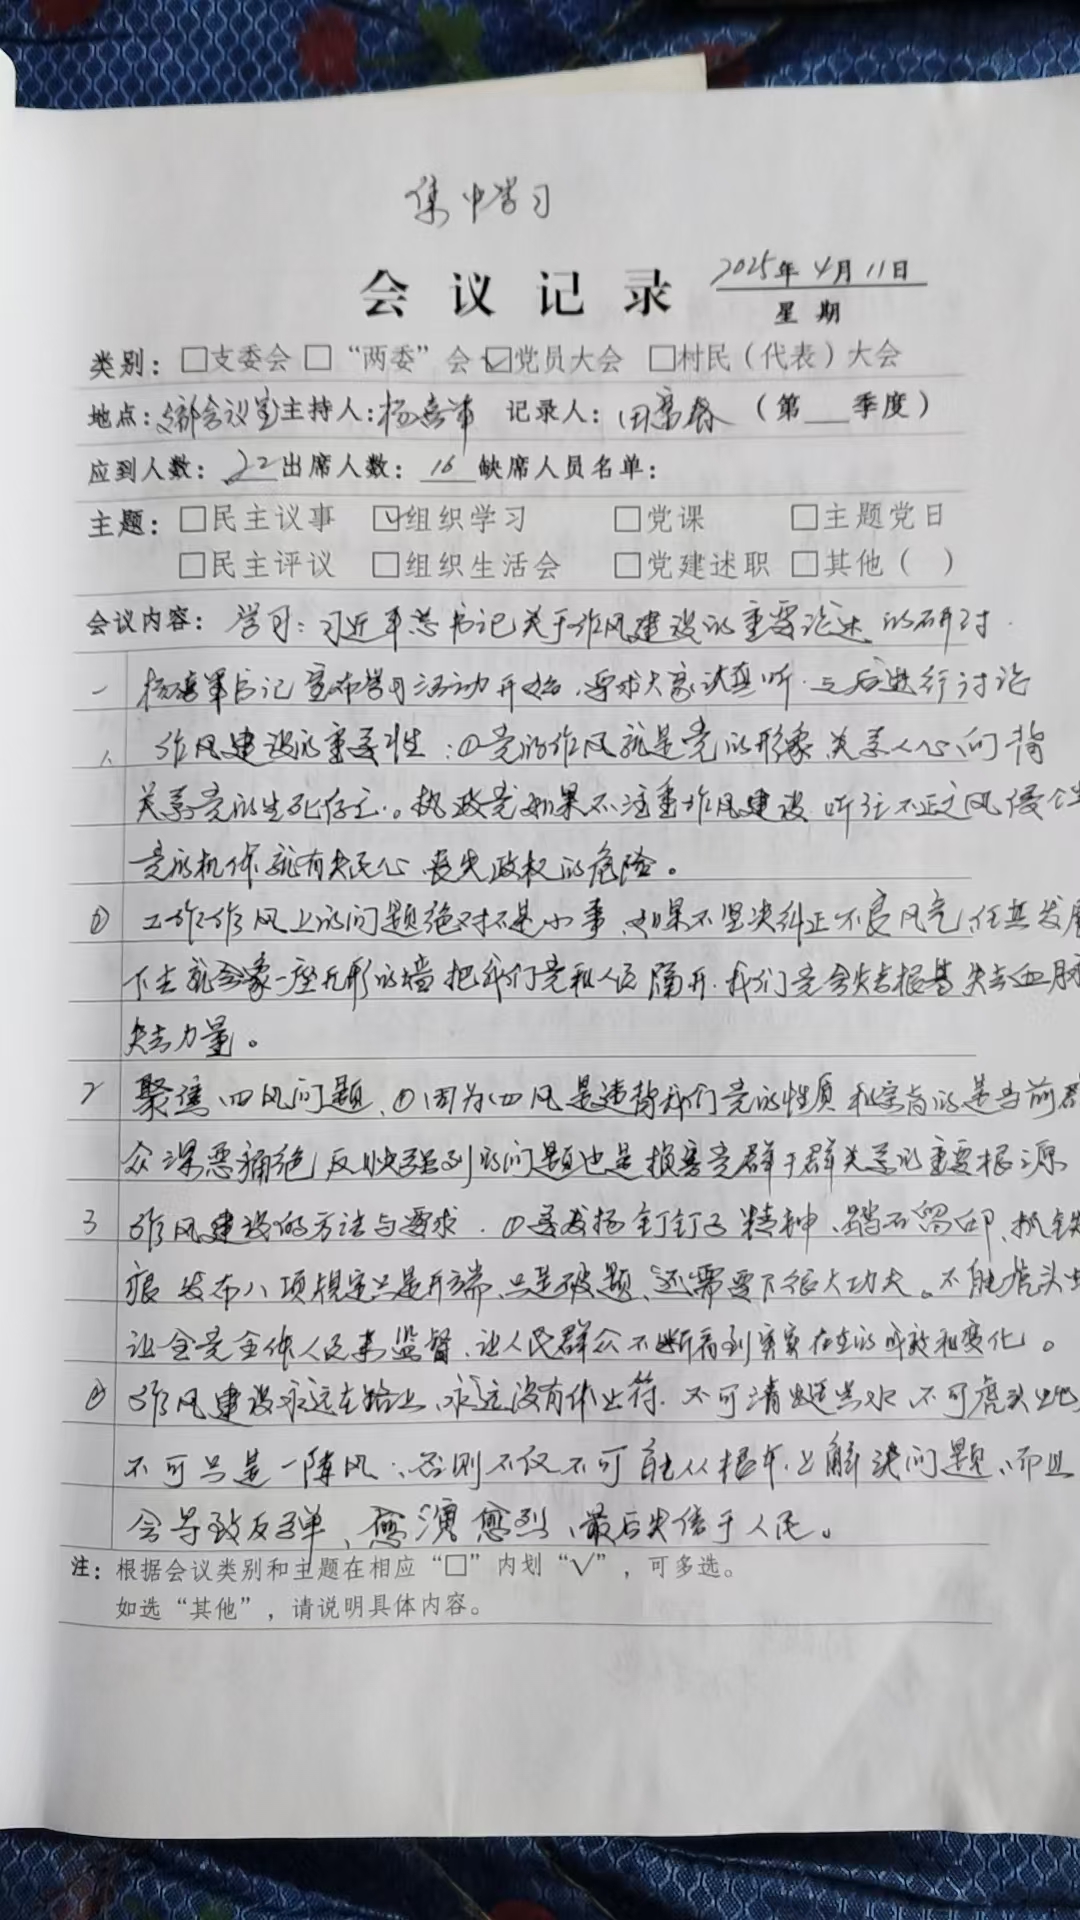 集中学习
会议记录
2025年4月11日
星期
类别：□支委会 □“两委”会 ☑党员大会 □村民（代表）大会
地点：支部会议室 主持人：杨 记录人：田春 （第 季度）
应到人数：22 出席人数：16 缺席人员名单：
主题：□民主议事 ☑组织学习 □党课 □主题党日
□民主评议 □组织生活会 □党建述职 □其他（ ）
会议内容：学习：习近平总书记关于作风建设的重要论述的研讨.
一 书记宣布学习活动开始、要求大家认真听、之后进行讨论
1、作风建设的重要性：①党的作风就是党的形象、关系人心向背
关系党的生死存亡。执政党如果不注重作风建设 听任不正之风侵
党的机体 就有失民心、丧失政权的危险。
② 工作作风上的问题绝对不是小事、如果不坚决纠正不良风气、任其发展
下去就会象一座无形的墙把我们党和人民隔开.我们党会失去根基 失去血脉
失去力量。
2 聚焦四风问题、①因为四风是违背我们党的性质和宗旨的是当前群
众深恶痛绝反映强烈的问题也是损害党群干群关系的重要根源
3 作风建设的方法与要求.①要发扬钉钉子精神、踏石留印、抓铁
痕 发布八项规定只是开端、只是破题、还需要下很大功夫。不能虎头
让全党全体人民来监督、让人民群众不断看到实实在在的成效和变化。
② 作风建设永远在路上、永远没有休止符.不可清水、不可虎头
不可只是一阵风、否则不仅不可能从根本上解决问题、而且
会导致反弹、愈演愈烈、最后失信于人民。
注：根据会议类别和主题在相应“□”内划“√”，可多选。
如选“其他”，请说明具体内容。